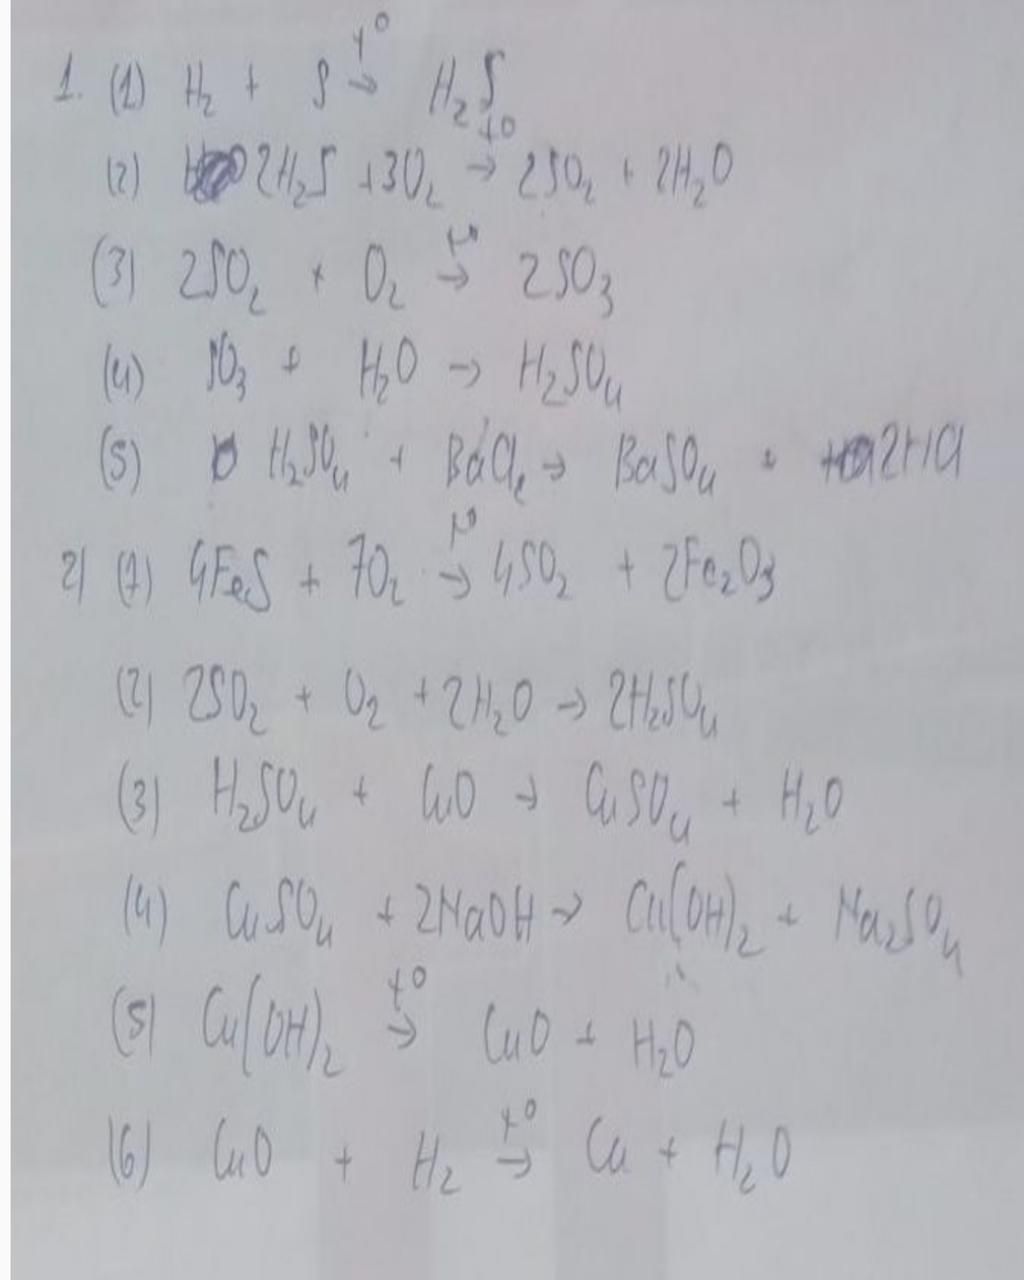 1. (1) H₂ + S →(t°) H₂S
(2) 2H₂S + 3O₂ →(t°) 2SO₂ + 2H₂O
(3) 2SO₂ + O₂ →(t°) 2SO₃
(4) SO₃ + H₂O → H₂SO₄
(5) H₂SO₄ + BaCl₂ → BaSO₄ + 2HCl
2) (1) 4FeS + 7O₂ →(t°) 4SO₂ + 2Fe₂O₃
(2) 2SO₂ + O₂ + 2H₂O → 2H₂SO₄
(3) H₂SO₄ + CuO → CuSO₄ + H₂O
(4) CuSO₄ + 2NaOH → Cu(OH)₂ + Na₂SO₄
(5) Cu(OH)₂ →(t°) CuO + H₂O
(6) CuO + H₂ →(t°) Cu + H₂O